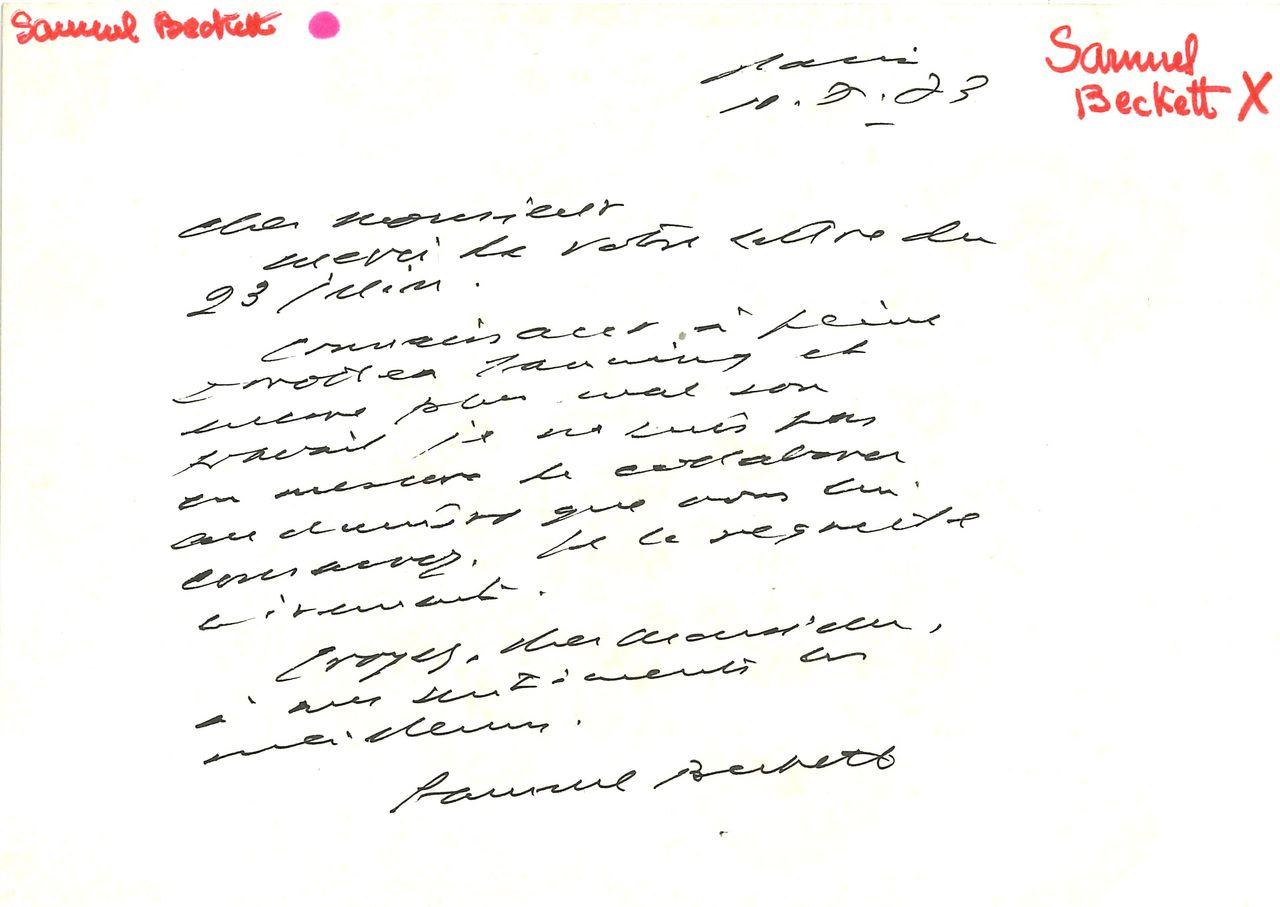 Samuel Beckett
Samuel
Beckett X
Paris
Cher Monsieur
merci de votre lettre du
23 juin.
Connaissant à peine
Dorothea Tanning et
encore plus mal son
travail je ne suis pas
en mesure de collaborer
au numéro que vous lui
consacrez. Je le regrette
vivement.
Croyez, cher Monsieur,
à mes sentiments les
meilleurs.
Samuel Beckett